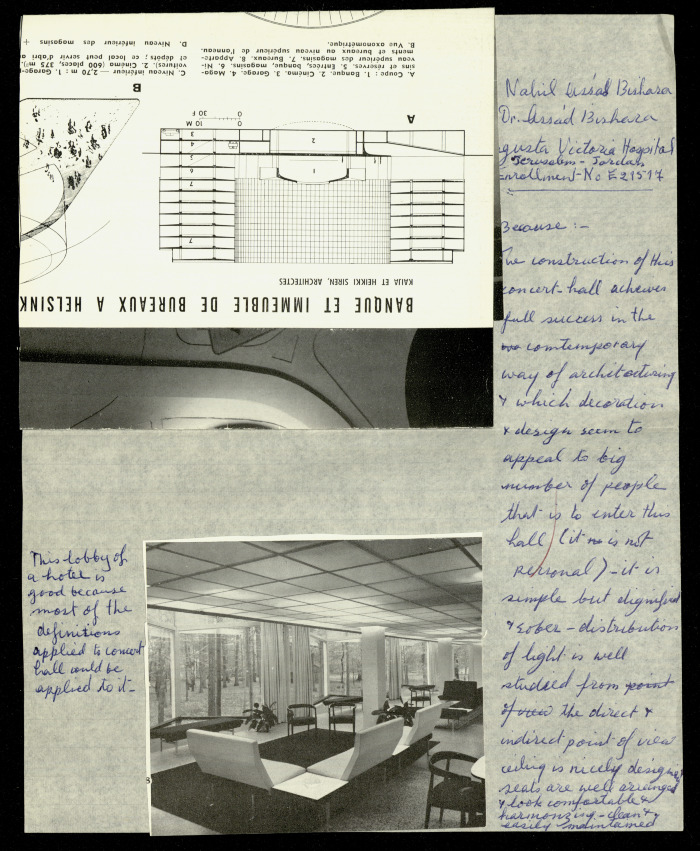 BANQUE ET IMMEUBLE DE BUREAUX A HELSINK
KAIJA ET HEIKKI SIREN, ARCHITECTES
A
B
10 M
30 F
1
2
3
4
5
6
7
7
A. Coupe : 1. Banque. 2. Cinéma. 3. Garage. 4. Maga-
sins et réserves. 5. Entrées, banque, magasins. 6. Ni-
veau supérieur des magasins. 7. Bureaux. 8. Apparte-
ments et bureaux au niveau supérieur de l'anneau.
B. Vue axonométrique.
C. Niveau inférieur — 2,70 m : 1. Garage
voitures). 2. Cinéma (600 places, 375 m²).
et dépôts ; ce local peut servir d'abri
D. Niveau inférieur des magasins +
Nabil Assád Bishara
Dr. Assád Bishara
gusta Victoria Hospital
Jerusalem - Jordan
Enrollment-No E21517
Because :-
The construction of this
concert-hall achieves
full success in the
comtemporary
way of architecturing
& which decoration
& design seem to
appeal to big
number of people
that is to enter this
hall (it is not
personal) - it is
simple but dignified
& sober - distribution
of light is well
studied from point
of view the direct &
indirect point of view
ceiling is nicely designed
seats are well arranged
& look comfortable &
harmonizing - clean &
easily maintained
This lobby of
a hotel is
good because
most of the
definitions
applied to concert
hall could be
applied to it -